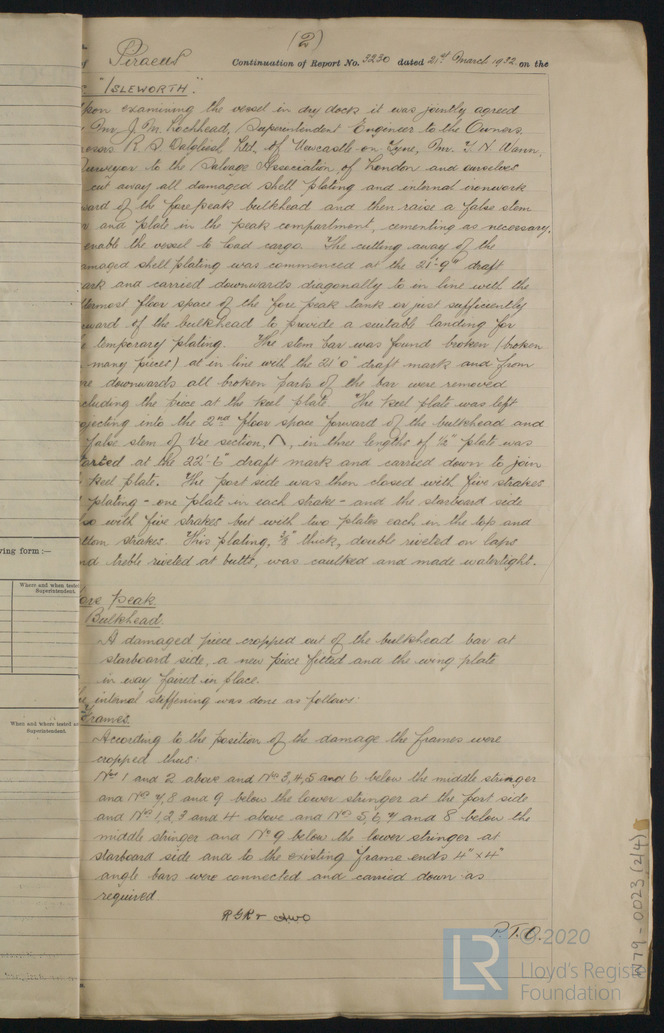 (2)
Piraeus Continuation of Report No. 3230 dated 21st March 1932 on the
"ISLEWORTH".
upon examining the vessel in dry dock it was jointly agreed
Mr. J. M. Lochhead, Superintendent Engineer to the Owners
R S Dalgliesh Ltd. of Newcastle-on-Tyne, Mr.
Surveyor to the Salvage Association of London and ourselves
cut away all damaged shell plating and internal ironwork
ward of the forepeak bulkhead and then raise a false stem
and plate in the peak compartment, cementing as necessary,
enable the vessel to load cargo. The cutting away of the
amaged shell plating was commenced at the 21'-9" draft
ark and carried downwards diagonally to in line with the
termost floor space of the fore peak tank or just sufficiently
ward of the bulkhead to provide a suitable landing for
temporary plating. The stem bar was found broken (broken
many pieces) at in line with the 21'0" draft mark and from
re downwards all broken parts of the bar were removed
cluding the piece at the keel plate. The keel plate was left
ojecting into the 2nd floor space forward of the bulkhead and
false stem of Vee section, Λ, in three lengths of ½" plate was
arted at the 22'-6" draft mark and carried down to join
keel plate. The port side was then closed with five strakes
plating - one plate in each strake - and the starboard side
so with five strakes but with two plates each in the top and
ttom strakes. This plating, 3/8" thick, double riveted on laps
nd treble riveted at butts, was caulked and made watertight.
ore Peak
Bulkhead.
A damaged piece cropped out of the bulkhead bar at
starboard side, a new piece fitted and the wing plate
in way faired in place.
e internal stiffening was done as follows:
Frames
According to the position of the damage the frames were
cropped thus:
Nos 1 and 2 above and Nos 3,4,5 and 6 below the middle stringer
and Nos 7,8 and 9 below the lower stringer at the port side
and Nos 1,2,3 and 4 above and Nos 5,6,7 and 8 below the
middle stringer and No 9 below the lower stringer at
starboard side and to the existing frame ends 4" x 4"
angle bars were connected and carried down as
required.
P.T.O.
ving form :—
Where and when tested
Superintendent.
When and where tested a
Superintendent.
W79-0023 (2/4)
©2020
LR
Lloyd's Register
Foundation